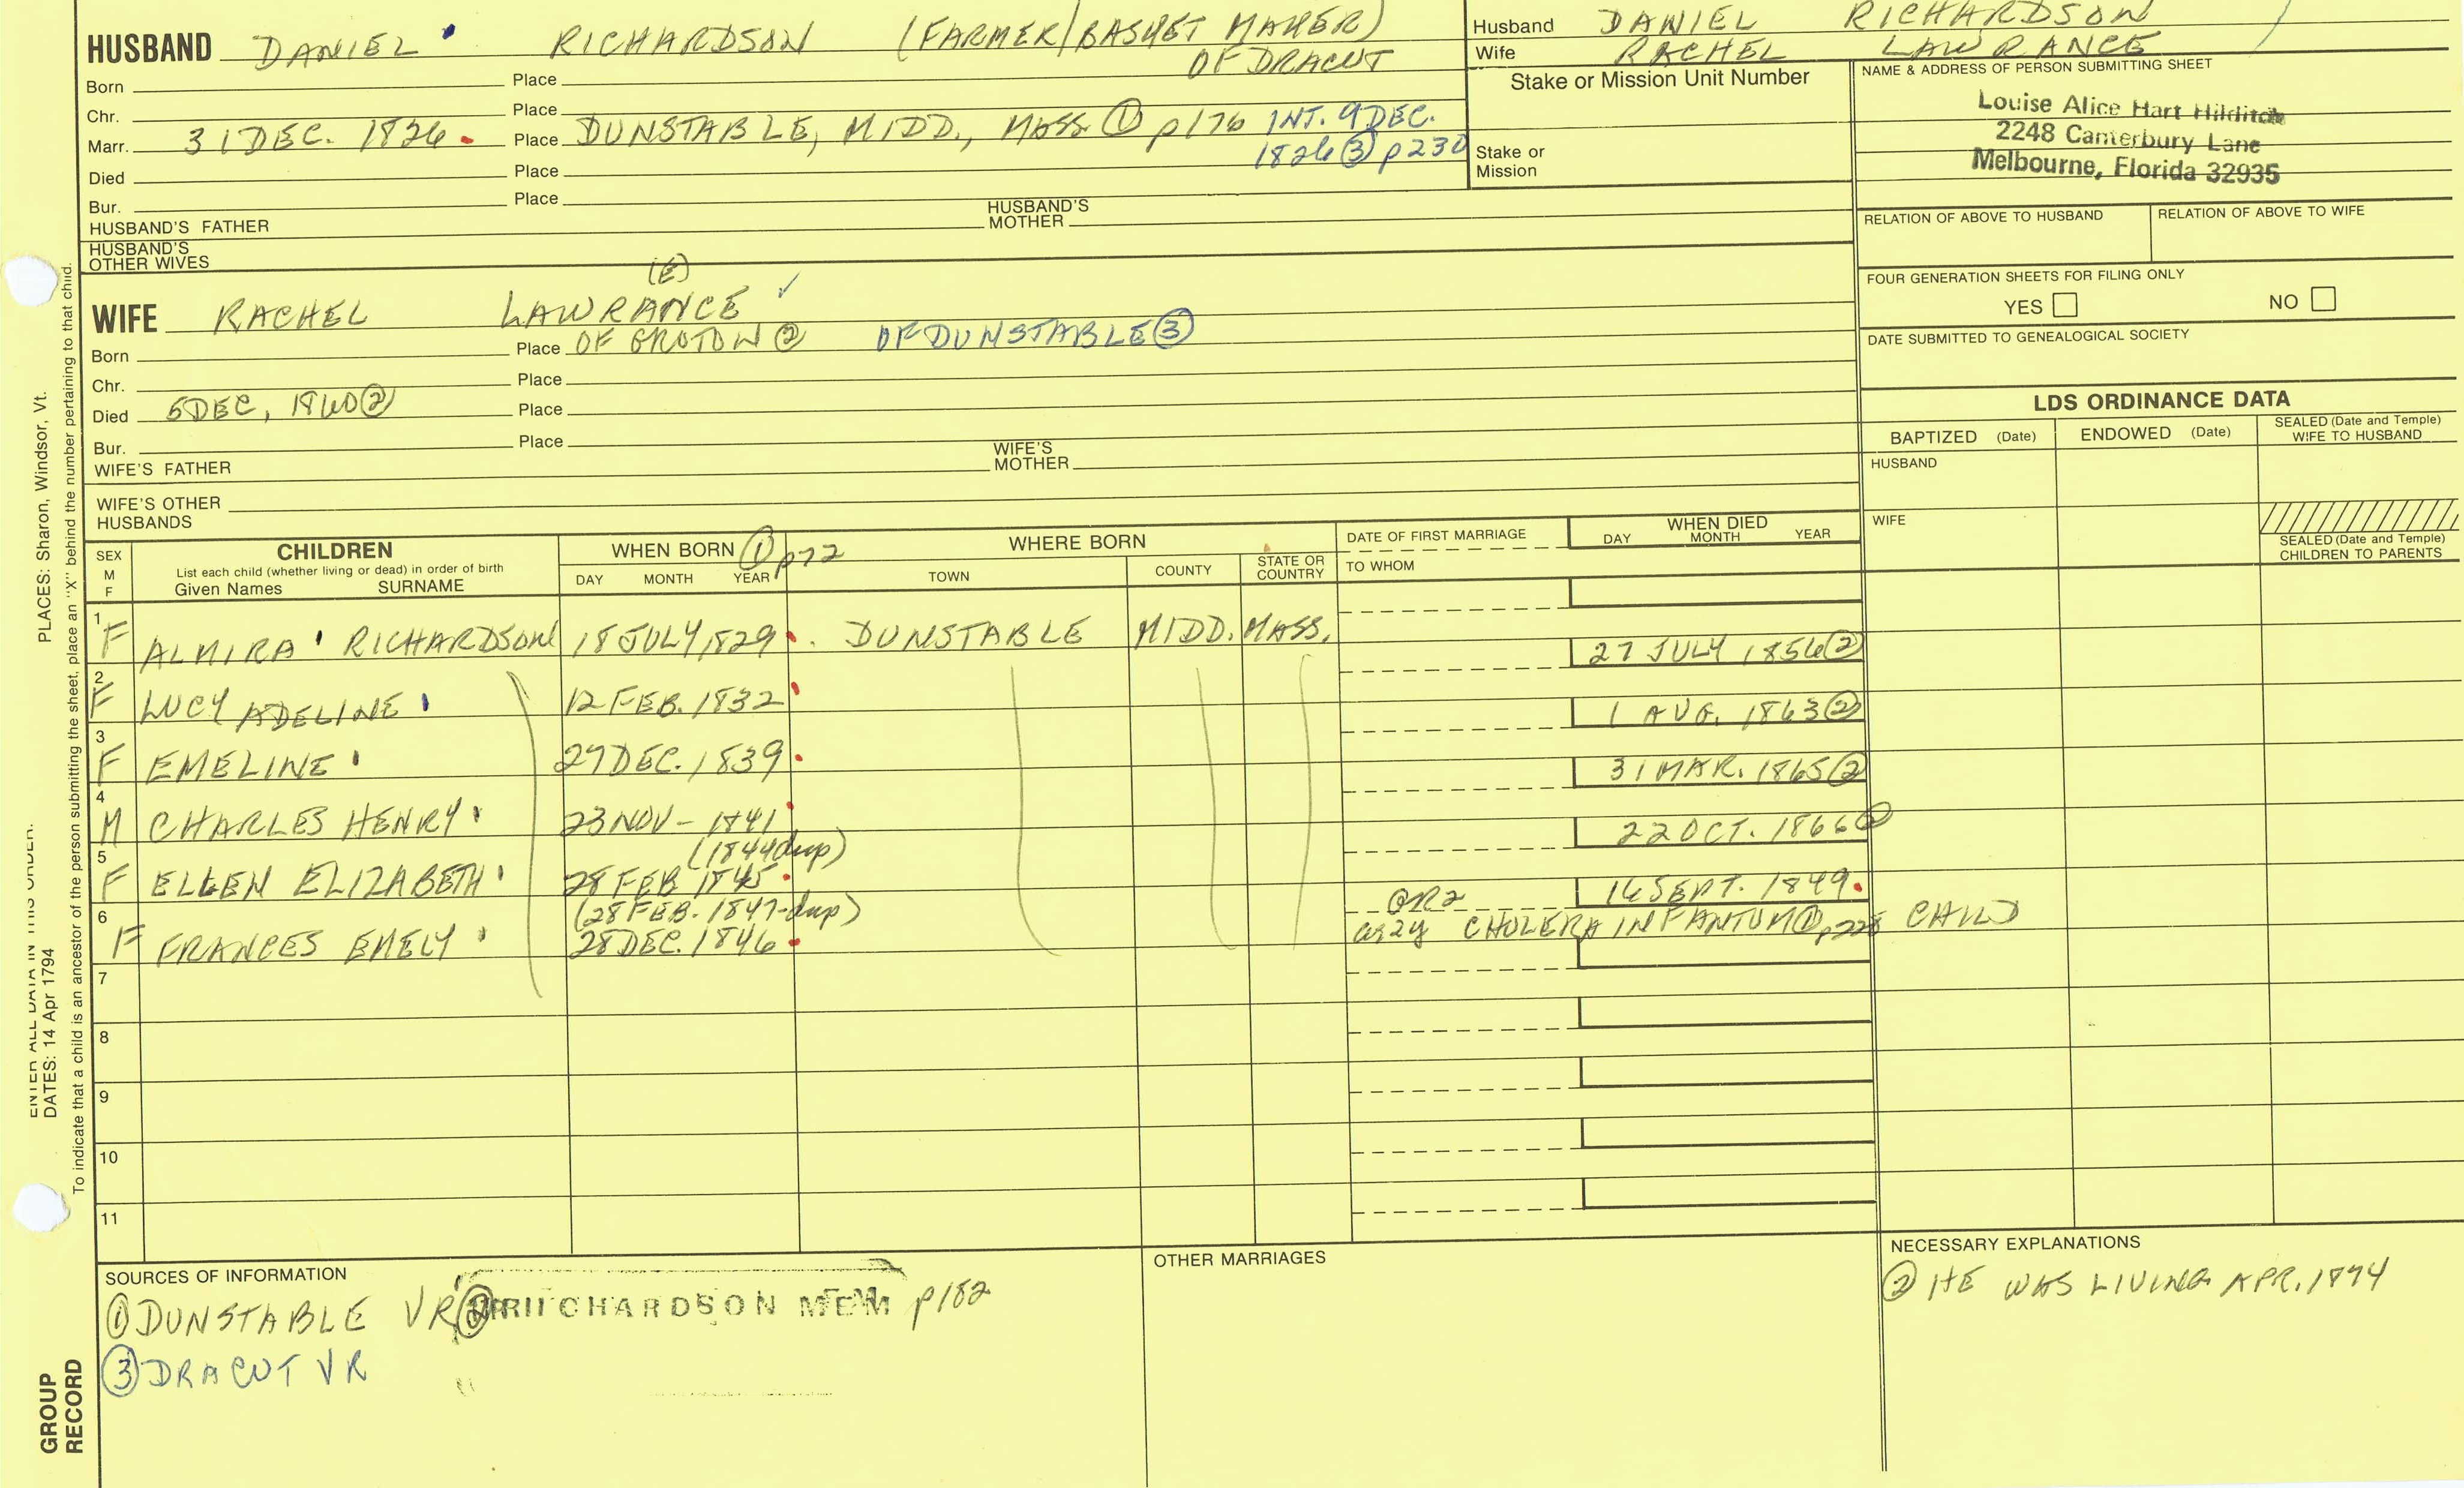 HUSBAND DANIEL RICHARDSON (FARMER/BASKET MAKER)
OF DRACUT
Born Place
Chr. Place
Marr. 31 DEC. 1826. Place DUNSTABLE, MIDD., MASS. ① p176 INT. 9 DEC.
1826 ③ p230
Died Place
Bur. Place
HUSBAND'S FATHER HUSBAND'S MOTHER
HUSBAND'S OTHER WIVES
Husband DANIEL RICHARDSON
Wife RACHEL LAWRANCE
Stake or Mission Unit Number
Stake or Mission
NAME & ADDRESS OF PERSON SUBMITTING SHEET
Louise Alice Hart Hilditch
2248 Canterbury Lane
Melbourne, Florida 32935
RELATION OF ABOVE TO HUSBAND RELATION OF ABOVE TO WIFE
FOUR GENERATION SHEETS FOR FILING ONLY
YES NO
DATE SUBMITTED TO GENEALOGICAL SOCIETY
(E)
WIFE RACHEL LAWRANCE ✓
Born Place OF GROTON ② OF DUNSTABLE ③
Chr. Place
Died 5 DEC, 1860 ② Place
Bur. Place
WIFE'S FATHER WIFE'S MOTHER
WIFE'S OTHER HUSBANDS
LDS ORDINANCE DATA
BAPTIZED (Date) ENDOWED (Date) SEALED (Date and Temple) WIFE TO HUSBAND
HUSBAND
WIFE
SEALED (Date and Temple) CHILDREN TO PARENTS
SEX M F
CHILDREN
List each child (whether living or dead) in order of birth
Given Names SURNAME
WHEN BORN ① p72
DAY MONTH YEAR
WHERE BORN
TOWN COUNTY STATE OR COUNTRY
DATE OF FIRST MARRIAGE
TO WHOM
WHEN DIED
DAY MONTH YEAR
1 F ALMIRA RICHARDSON 18 JULY 1829. DUNSTABLE MIDD. MASS. 27 JULY 1856 ②
2 F LUCY ADELINE 12 FEB. 1832 1 AUG. 1863 ②
3 F EMELINE 27 DEC. 1839. 31 MAR. 1865 ②
4 M CHARLES HENRY 23 NOV - 1841 22 OCT. 1866 ②
(1844 dup)
5 F ELLEN ELIZABETH 28 FEB 1845. GR2 16 SEPT. 1849.
(28 FEB. 1847-dup) ag 2y CHOLERA INFANTUM ① p228 CHILD
6 F FRANCES EMELY 28 DEC. 1846.
7
8
9
10
11
SOURCES OF INFORMATION
① DUNSTABLE VR ② RICHARDSON MEM p182
③ DRACUT VR
OTHER MARRIAGES
NECESSARY EXPLANATIONS
② HE WAS LIVING APR. 1874
ENTER ALL DATA IN THIS ORDER:
DATES: 14 Apr 1794 PLACES: Sharon, Windsor, Vt.
To indicate that a child is an ancestor of the person submitting the sheet, place an "X" behind the number pertaining to that child.
GROUP RECORD